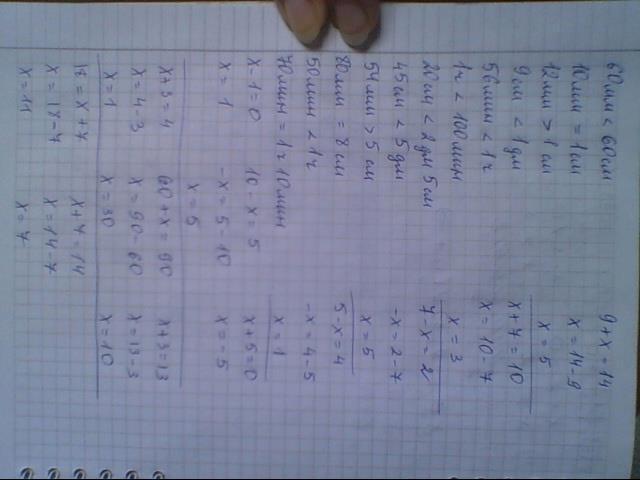 60мм < 60см 9 + x = 14
10мм = 1см x = 14 - 9
12мм > 1см x = 5
9см < 1дм x + 7 = 10
56мин < 1ч x = 10 - 7
1ч < 100мин x = 3
20см < 2дм 5см 7 - x = 2
45см < 5дм -x = 2 - 7
54мм > 5см x = 5
80мм = 8см 5 - x = 4
50мин < 1ч -x = 4 - 5
70мин = 1ч 10мин x = 1
x - 1 = 0 10 - x = 5 x + 5 = 0
x = 1 -x = 5 - 10 x = -5
x = 5
x + 3 = 4 60 + x = 90 x + 3 = 13
x = 4 - 3 x = 90 - 60 x = 13 - 3
x = 1 x = 30 x = 10
18 = x + 7 x + 7 = 14
x = 18 - 7 x = 14 - 7
x = 11 x = 7